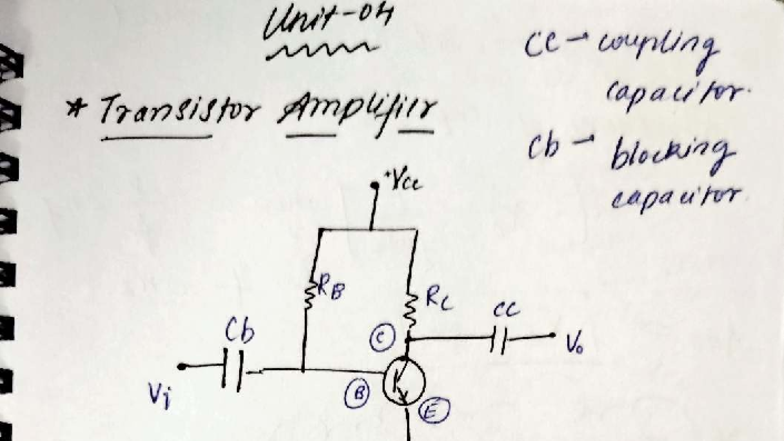 Unit-04
* Transistor Amplifier
CC → coupling
capacitor.
Cb → blocking
capacitor.
+Vcc
RB
RC
Cb
CC
C
Vo
Vi
B
E